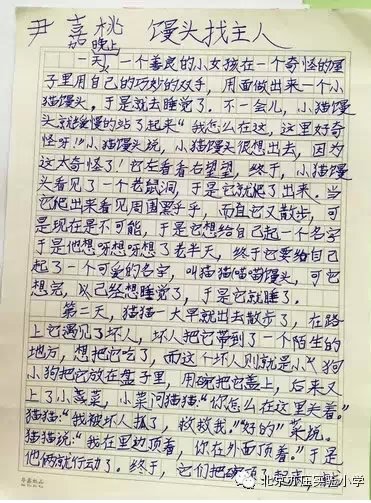 尹嘉桃 馒头找主人
晚上
一天，一个善良的小女孩在一个奇怪的屋
子里用自己的巧妙的双手，用面做出来一个小
猫馒头，于是就去睡觉了。不一会儿，小猫馒
头就慢慢的站了起来“我怎么在这，这里好奇
怪呀!”小猫馒头说，小猫馒头很想出去，因为
这太奇怪了！它左看看右望望，终于，小猫馒
头看见了一个老鼠洞，于是它就爬了出来。当
它爬出来看见周围黑乎乎，而且它又散步，可
是现在是不可能，于是它想给自己起一个名字
于是他想呀想呀想了老半天，终于它要给自己
起了一个可爱的名字，叫猫猫喵喵馒头，可它
想完，以已经想睡觉了，于是它就睡了。
第二天，猫猫一大早就出去散步了，在路
上它遇见了坏人，坏人把它带到了一个陌生的
地方，想把它吃了，而这个坏人则就是小狗
小狗把它放在盘子里，用碗把它盖上，后来又
上了小菜，小菜问猫猫：“你怎么在这里关着。”
猫猫：“我被坏人抓了，救救我。”“好的”菜说。
猫猫说：“我在里边顶着，你在外面顶着。”于是
他俩就行动了。终于，它们把碗
北京亦庄实验小学